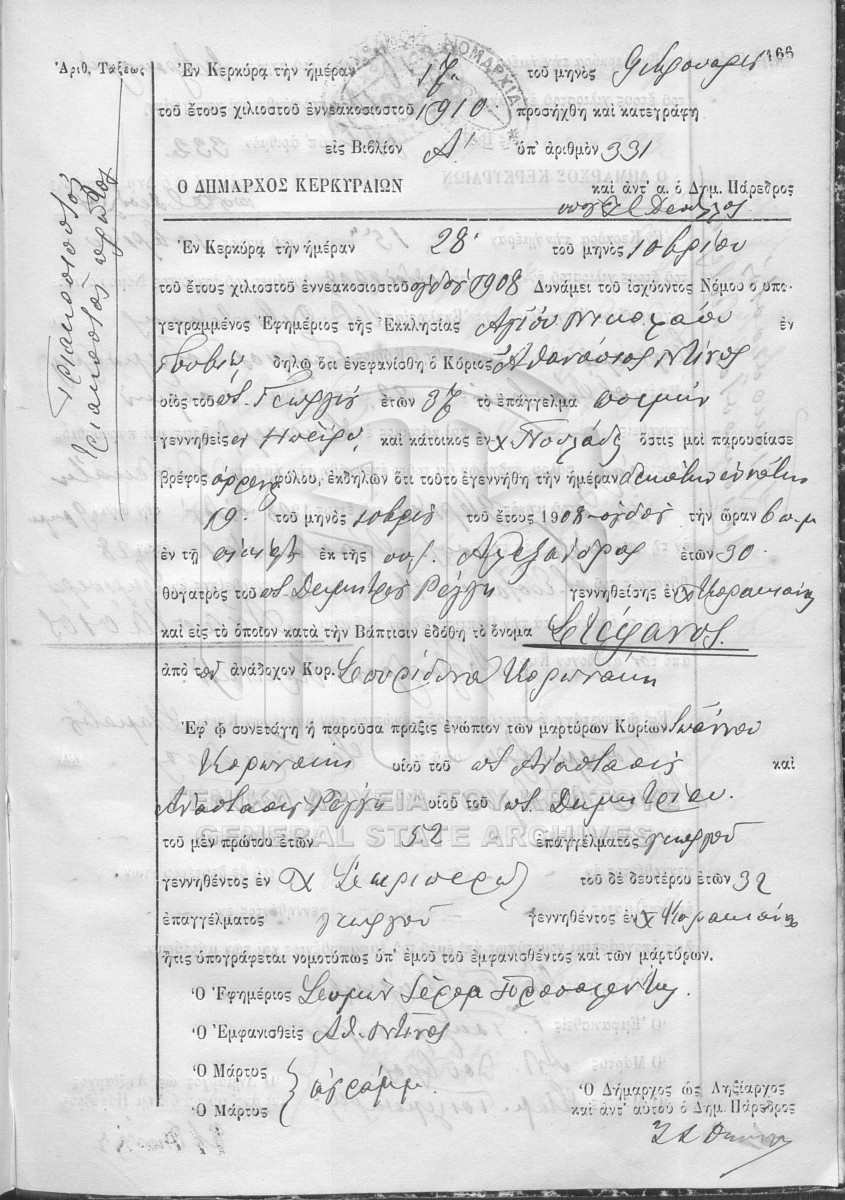 166
Ἀριθ. Τάξεως
Ἐν Κερκύρᾳ τὴν ἡμέραν 17 τοῦ μηνὸς
τοῦ ἔτους χιλιοστοῦ ἐννεακοσιοστοῦ 1910 προσήχθη καὶ κατεγράφη
εἰς Βιβλίον Α' ὑπ' ἀριθμὸν 331
Ο ΔΗΜΑΡΧΟΣ ΚΕΡΚΥΡΑΙΩΝ καὶ ἀντ' α. ὁ Δημ. Πάρεδρος
τριακοστὸς πρῶτος
Ἐν Κερκύρᾳ τὴν ἡμέραν 28 τοῦ μηνὸς 10βρίου
τοῦ ἔτους χιλιοστοῦ ἐννεακοσιοστοῦ ὀγδόου 1908 Δυνάμει τοῦ ἰσχύοντος Νόμου ὁ ὑπο-
γεγραμμένος Ἐφημέριος τῆς Ἐκκλησίας Ἁγίου Νικολάου ἐν
δηλῶ ὅτι ἐνεφανίσθη ὁ Κύριος Ἀθανάσιος Ντίνος
υἱὸς τοῦ π. Γεωργίου ἐτῶν 37 τὸ ἐπάγγελμα ποιμὴν
γεννηθεὶς ἐν Ἠπείρῳ, καὶ κάτοικος ἐν χ ὅστις μοὶ παρουσίασε
βρέφος ἄρρεν φύλου, ἐκδηλῶν ὅτι τοῦτο ἐγεννήθη τὴν ἡμέραν δεκάτην ἐννάτην
19 τοῦ μηνὸς 10βρίου τοῦ ἔτους 1908 ὀγδόου τὴν ὥραν 6 π.μ
ἐν τῇ οἰκίᾳ ἐκ τῆς συζ. Ἀλεξάνδρας ἐτῶν 30
θυγατρὸς τοῦ π. Δημητρίου Ρέγγη γεννηθείσης ἐν χ
καὶ εἰς τὸ ὁποῖον κατὰ τὴν Βάπτισιν ἐδόθη τὸ ὄνομα Στέφανος.
ἀπὸ τὸν ἀνάδοχον Κυρ. Σπυρίδωνα Κορωνάκη
Ἐφ' ᾧ συνετάγη ἡ παροῦσα πρᾶξις ἐνώπιον τῶν μαρτύρων Κυρίων Ἰωάννου
Κορωνάκη υἱοῦ τοῦ π. Ἀναστασίου καὶ
Ἀναστασίου Ρέγγη υἱοῦ τοῦ π. Δημητρίου.
ΓΕΝΙΚΑ ΑΡΧΕΙΑ ΤΟΥ ΚΡΑΤΟΥΣ
GENERAL STATE ARCHIVES
τοῦ μὲν πρώτου ἐτῶν 52 ἐπαγγέλματος γεωργοῦ
γεννηθέντος ἐν χ τοῦ δὲ δευτέρου ἐτῶν 32
ἐπαγγέλματος γεωργοῦ γεννηθέντος ἐν χ
ἥτις ὑπογράφεται νομοτύπως ὑπ' ἐμοῦ τοῦ ἐμφανισθέντος καὶ τῶν μαρτύρων.
Ὁ Ἐφημέριος
Ὁ Ἐμφανισθεὶς Αθ. Ντίνος
Ὁ Μάρτυς
ἀγράμμ.
Ὁ Μάρτυς
Ὁ Δήμαρχος ὡς Ληξίαρχος
καὶ ἀντ' αὐτοῦ ὁ Δημ. Πάρεδρος